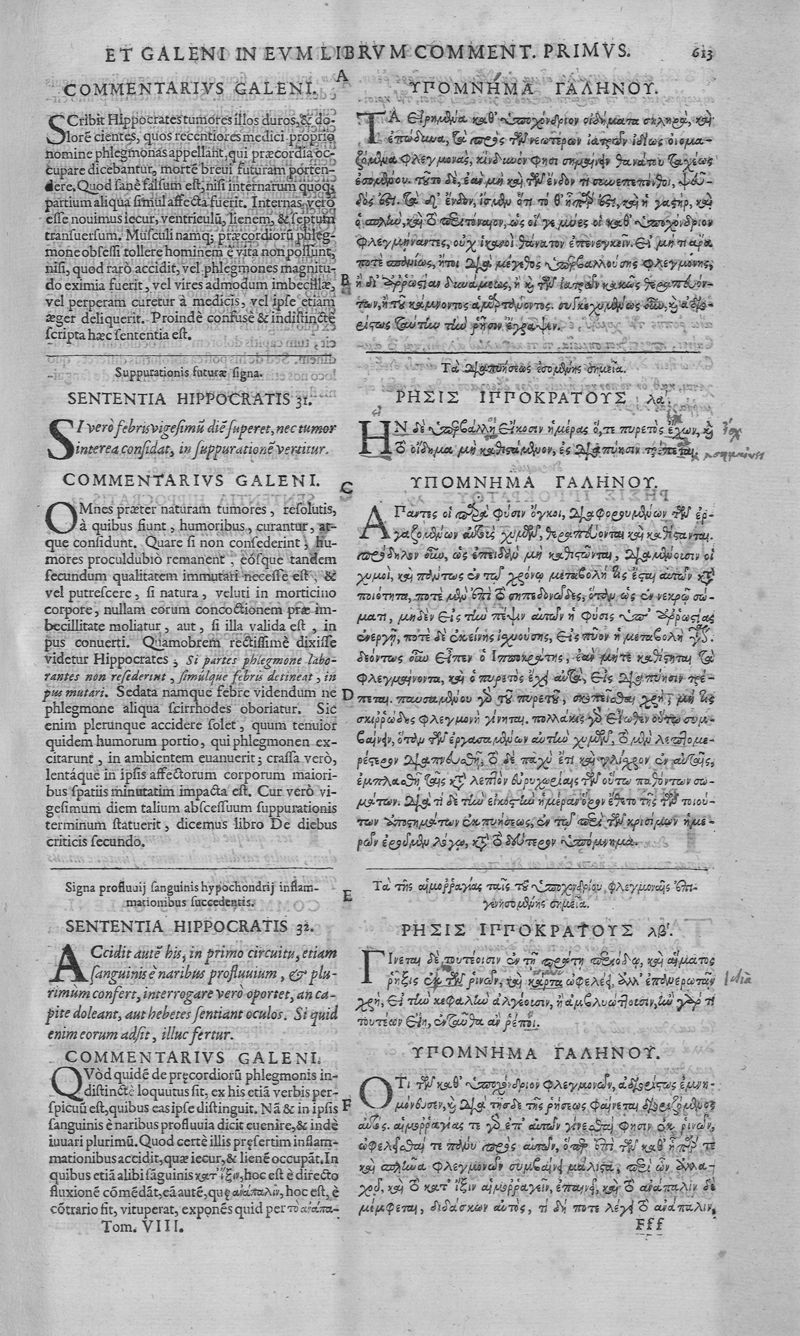 ET GALENI IN EVM LIBRVM COMMENT. PRIMVS. 613
A
COMMENTARIVS GALENI.
SCribit Hippocrates tumores illos duros, & do-
lorē cientes, quos recentiores medici propriò
nomine phlegmonas appellant, qui præcordia oc-
cupare dicebantur, mortē breui futuram porten-
dere. Quod sanè falsum est, nisi internarum quoq;
partium aliqua simul affecta fuerit. Internas verò
esse nouimus iecur, ventriculū, lienem, & septum
transuersum. Musculi namq; præcordiorū phleg-
mone obsessi tollere hominem è vita non possunt,
nisi, quod rarò accidit, vel phlegmones magnitu-
do eximia fuerit, vel vires admodum imbecillæ,
vel perperam curetur à medicis, vel ipse etiam
æger deliquerit. Proindè confusè & indistinctè
scripta hæc sententia est.
B
Suppurationis futuræ signa.
SENTENTIA HIPPOCRATIS 31.
SI verò febris vigesimū diē superet, nec tumor
interea considat, in suppurationē vertitur.
COMMENTARIVS GALENI.
C
OMnes præter naturam tumores, resolutis,
à quibus fiunt, humoribus, curantur, at-
que considunt. Quare si non consederint, hu-
mores proculdubiò remanent, eósque tandem
secundum qualitatem immutari necesse est, &
vel putrescere, si natura, veluti in morticino
corpore, nullam eorum concoctionem præ im-
becillitate moliatur, aut, si illa valida est, in
pus conuerti. Quamobrem rectissimè dixisse
videtur Hippocrates, Si partes phlegmone labo-
rantes non resederint, simúlque febris detineat, in
pus mutari. Sedata namque febre videndum ne
phlegmone aliqua scirrhodes oboriatur. Sic
enim plerunque accidere solet, quum tenuior
quidem humorum portio, qui phlegmonen ex-
citarunt, in ambientem euanuerit; crassa verò,
lentáque in ipsis affectorum corporum maiori-
bus spatiis minutatim impacta est. Cur verò vi-
gesimum diem talium abscessuum suppurationis
terminum statuerit, dicemus libro De diebus
criticis secundo.
D
Signa profluuij sanguinis hypochondrij inflam-
mationibus succedentis.
E
SENTENTIA HIPPOCRATIS 32.
ACcidit autē his, in primo circuitu, etiam
sanguinis è naribus profluuium, & plu-
rimum confert, interrogare verò oportet, an ca-
pite doleant, aut hebetes sentiant oculos. Si quid
enim eorum adsit, illuc fertur.
COMMENTARIVS GALENI.
QVòd quidē de pręcordiorū phlegmonis in-
distinctè loquutus sit, ex his etiā verbis per-
spicuū est, quibus eas ipse distinguit. Nā & in ipsis
sanguinis è naribus profluuia dicit euenire, & indè
iuuari plurimū. Quod certè illis pręsertim inflam-
mationibus accidit, quæ iecur, & lienē occupāt. In
quibus etiā alibi sāguinis κατ' ἴξιν, hoc est è directo
fluxionē cōmēdāt, eā autē, quę ἀνάπαλιν, hoc est, è
cōtrario fit, vituperat, exponēs quid per τὸ ἀνάπα-
F
Tom. VIII.
ΥΠΟΜΝΗΜΑ ΓΑΛΗΝΟΥ.
ΤΑ εἰρημένα καθ' ὑποχόνδριον οἰδήματα σκληρὰ, καὶ
ἐπώδυνα, τὰ πρὸς τῶν νεωτέρων ἰατρῶν ἰδίως ὀνομα-
ζόμενα φλεγμονὰς, κίνδυνόν φησι σημαίνειν θανάτου ταχέως
ἐσομένου. τοῦτο δὲ, ἐὰν μὴ καὶ τῶν ἔνδον τι συνεπεπόνθοι, ψεῦ-
δός ἐστι. τὰ δ' ἔνδον, ἴσμεν ὅτι τό θ' ἧπάρ ἐστι, καὶ ἡ γαστὴρ, καὶ
ὁ σπλὴν, καὶ τὸ περιτόναιον, ὡς οἵ γε μύες οἱ καθ' ὑποχόνδριον
φλεγμήναντες, οὐχ ἱκανοὶ θάνατον ἐπενεγκεῖν. εἰ μή τι ἄρα
ποτὲ σπανίως, ἤτοι διὰ μέγεθος ὑπερβαλλούσης φλεγμονῆς,
ἢ δι' ἀρρωστίαν δυνάμεως, ἢ καὶ τῶν ἰατρῶν κακῶς θεραπευόν-
των, ἢ τοῦ κάμνοντος ἁμαρτάνοντος. συγκεχυμένως οὖν, καὶ ἀδιο-
ρίστως ταύτην τὴν ῥῆσιν ἔγραψεν.
Τὰ διαπυήσεως ἐσομένης σημεῖα.
ΡΗΣΙΣ ΙΠΠΟΚΡΑΤΟΥΣ λα'.
ΗΝ δὲ ὑπερβάλλῃ εἴκοσιν ἡμέρας ὅ, τε πυρετὸς ἔχων, καὶ
τὸ οἴδημα μὴ καθιστάμενον, ἐς διαπύησιν τρέπεται.
ΥΠΟΜΝΗΜΑ ΓΑΛΗΝΟΥ.
ΑΠαντες οἱ παρὰ φύσιν ὄγκοι, διαφορουμένων τῶν ἐρ-
γαζομένων αὐτοὺς χυμῶν, θεραπεύονται καὶ καθίστανται.
πρόδηλον οὖν, ὡς ἐπειδὰν μὴ καθιστῶνται, διαμένουσιν οἱ
χυμοὶ, καὶ πάντως ἐν τῷ χρόνῳ μεταβολή τις ἔσται αὐτῶν κατὰ
ποιότητα, ποτὲ μὲν ἐπὶ τὸ σηπεδονῶδες, ὅταν ὡς ἐν νεκρῷ σώ-
ματι, μηδὲν εἰς τὴν πέψιν αὐτῶν ἡ φύσις ὑπ' ἀρρωστίας
ἐνεργῇ, ποτὲ δὲ ἐκείνης ἰσχυούσης, εἰς πῦον ἡ μεταβολὴ γίν.
δεόντως οὖν εἶπεν ὁ Ἱπποκράτης, ἐὰν μήτε καθίστηται τὰ
φλεγμαίνοντα, καὶ ὁ πυρετὸς ἔχῃ αὐτὰ, εἰς διαπύησιν τρέ-
πεται. παυσαμένου γὰρ τοῦ πυρετοῦ, σκοπεῖσθαι χρὴ, μή τις
σκιρρώδης φλεγμονὴ γίνηται. πολλάκις γὰρ εἴωθεν οὕτω συμ-
βαίνειν, ὅταν τῶν ἐργασαμένων αὐτὴν χυμῶν, τὸ μὲν λεπτομε-
ρέστερον διαπνευσθῇ, τὸ δὲ παχύ ἔτι καὶ γλίσχρον ἐν αὐταῖς,
ἐμπλασθῇ ταῖς κατὰ λεπτὸν εὐρυχωρίαις τῶν οὕτω παθόντων σω-
μάτων. διὰ τί δὲ τὴν εἰκοστὴν ἡμέραν ὅρον ἔθετο τῆς τῶν τοιού-
των ἀποστημάτων ἐκπυήσεως, ἐν τῷ περὶ τῶν κρισίμων ἡμε-
ρῶν ἐροῦμεν λόγῳ, κατὰ τὸ δεύτερον ὑπόμνημα.
Τὰ τῆς αἱμορραγίας ταῖς τοῦ ὑποχονδρίου φλεγμοναῖς ἐπι-
γενησομένης σημεῖα.
ΡΗΣΙΣ ΙΠΠΟΚΡΑΤΟΥΣ λβ'.
ΓΙνεται δὲ τουτέοισιν ἐν τῇ πρώτῃ περιόδῳ, καὶ αἵματος
ῥῆξις ἐκ τῶν ῥινῶν, καὶ κάρτα ὠφελέει, ἀλλ' ἐπανερωτᾶν
χρὴ, εἰ τὴν κεφαλὴν ἀλγέουσιν, ἢ ἀμβλυώττουσιν, ἢν γάρ τι
τουτέων εἴη, ἐνταῦθα ἂν ῥέποι.
ΥΠΟΜΝΗΜΑ ΓΑΛΗΝΟΥ.
ΟΤι τῶν καθ' ὑποχόνδριον φλεγμονῶν, ἀδιορίστως ἐμνη-
μόνευσεν, καὶ διὰ τῆσδε τῆς ῥήσεως φαίνεται διοριζόμενος
αὐτάς. αἱμορραγίας τε γὰρ ἐπ' αὐτῶν γίνεσθαι φησὶν ἐκ ῥινῶν,
ὠφελεῖσθαί τε πάνυ πρὸς αὐτῶν, ὅπερ ἐπὶ τῶν καθ' ἧπάρ τε
καὶ σπλῆνα φλεγμονῶν συμβαίνει μάλιστα, περὶ ὧν ἀλλα-
χοῦ, καὶ τὸ κατ' ἴξιν αἱμορραγεῖν, ἐπαινεῖ, καὶ τὸ ἀνάπαλιν δὲ
μέμφεται, διδάσκων αὐτὸς, τί δή ποτε λέγει τὸ ἀνάπαλιν,
Fff